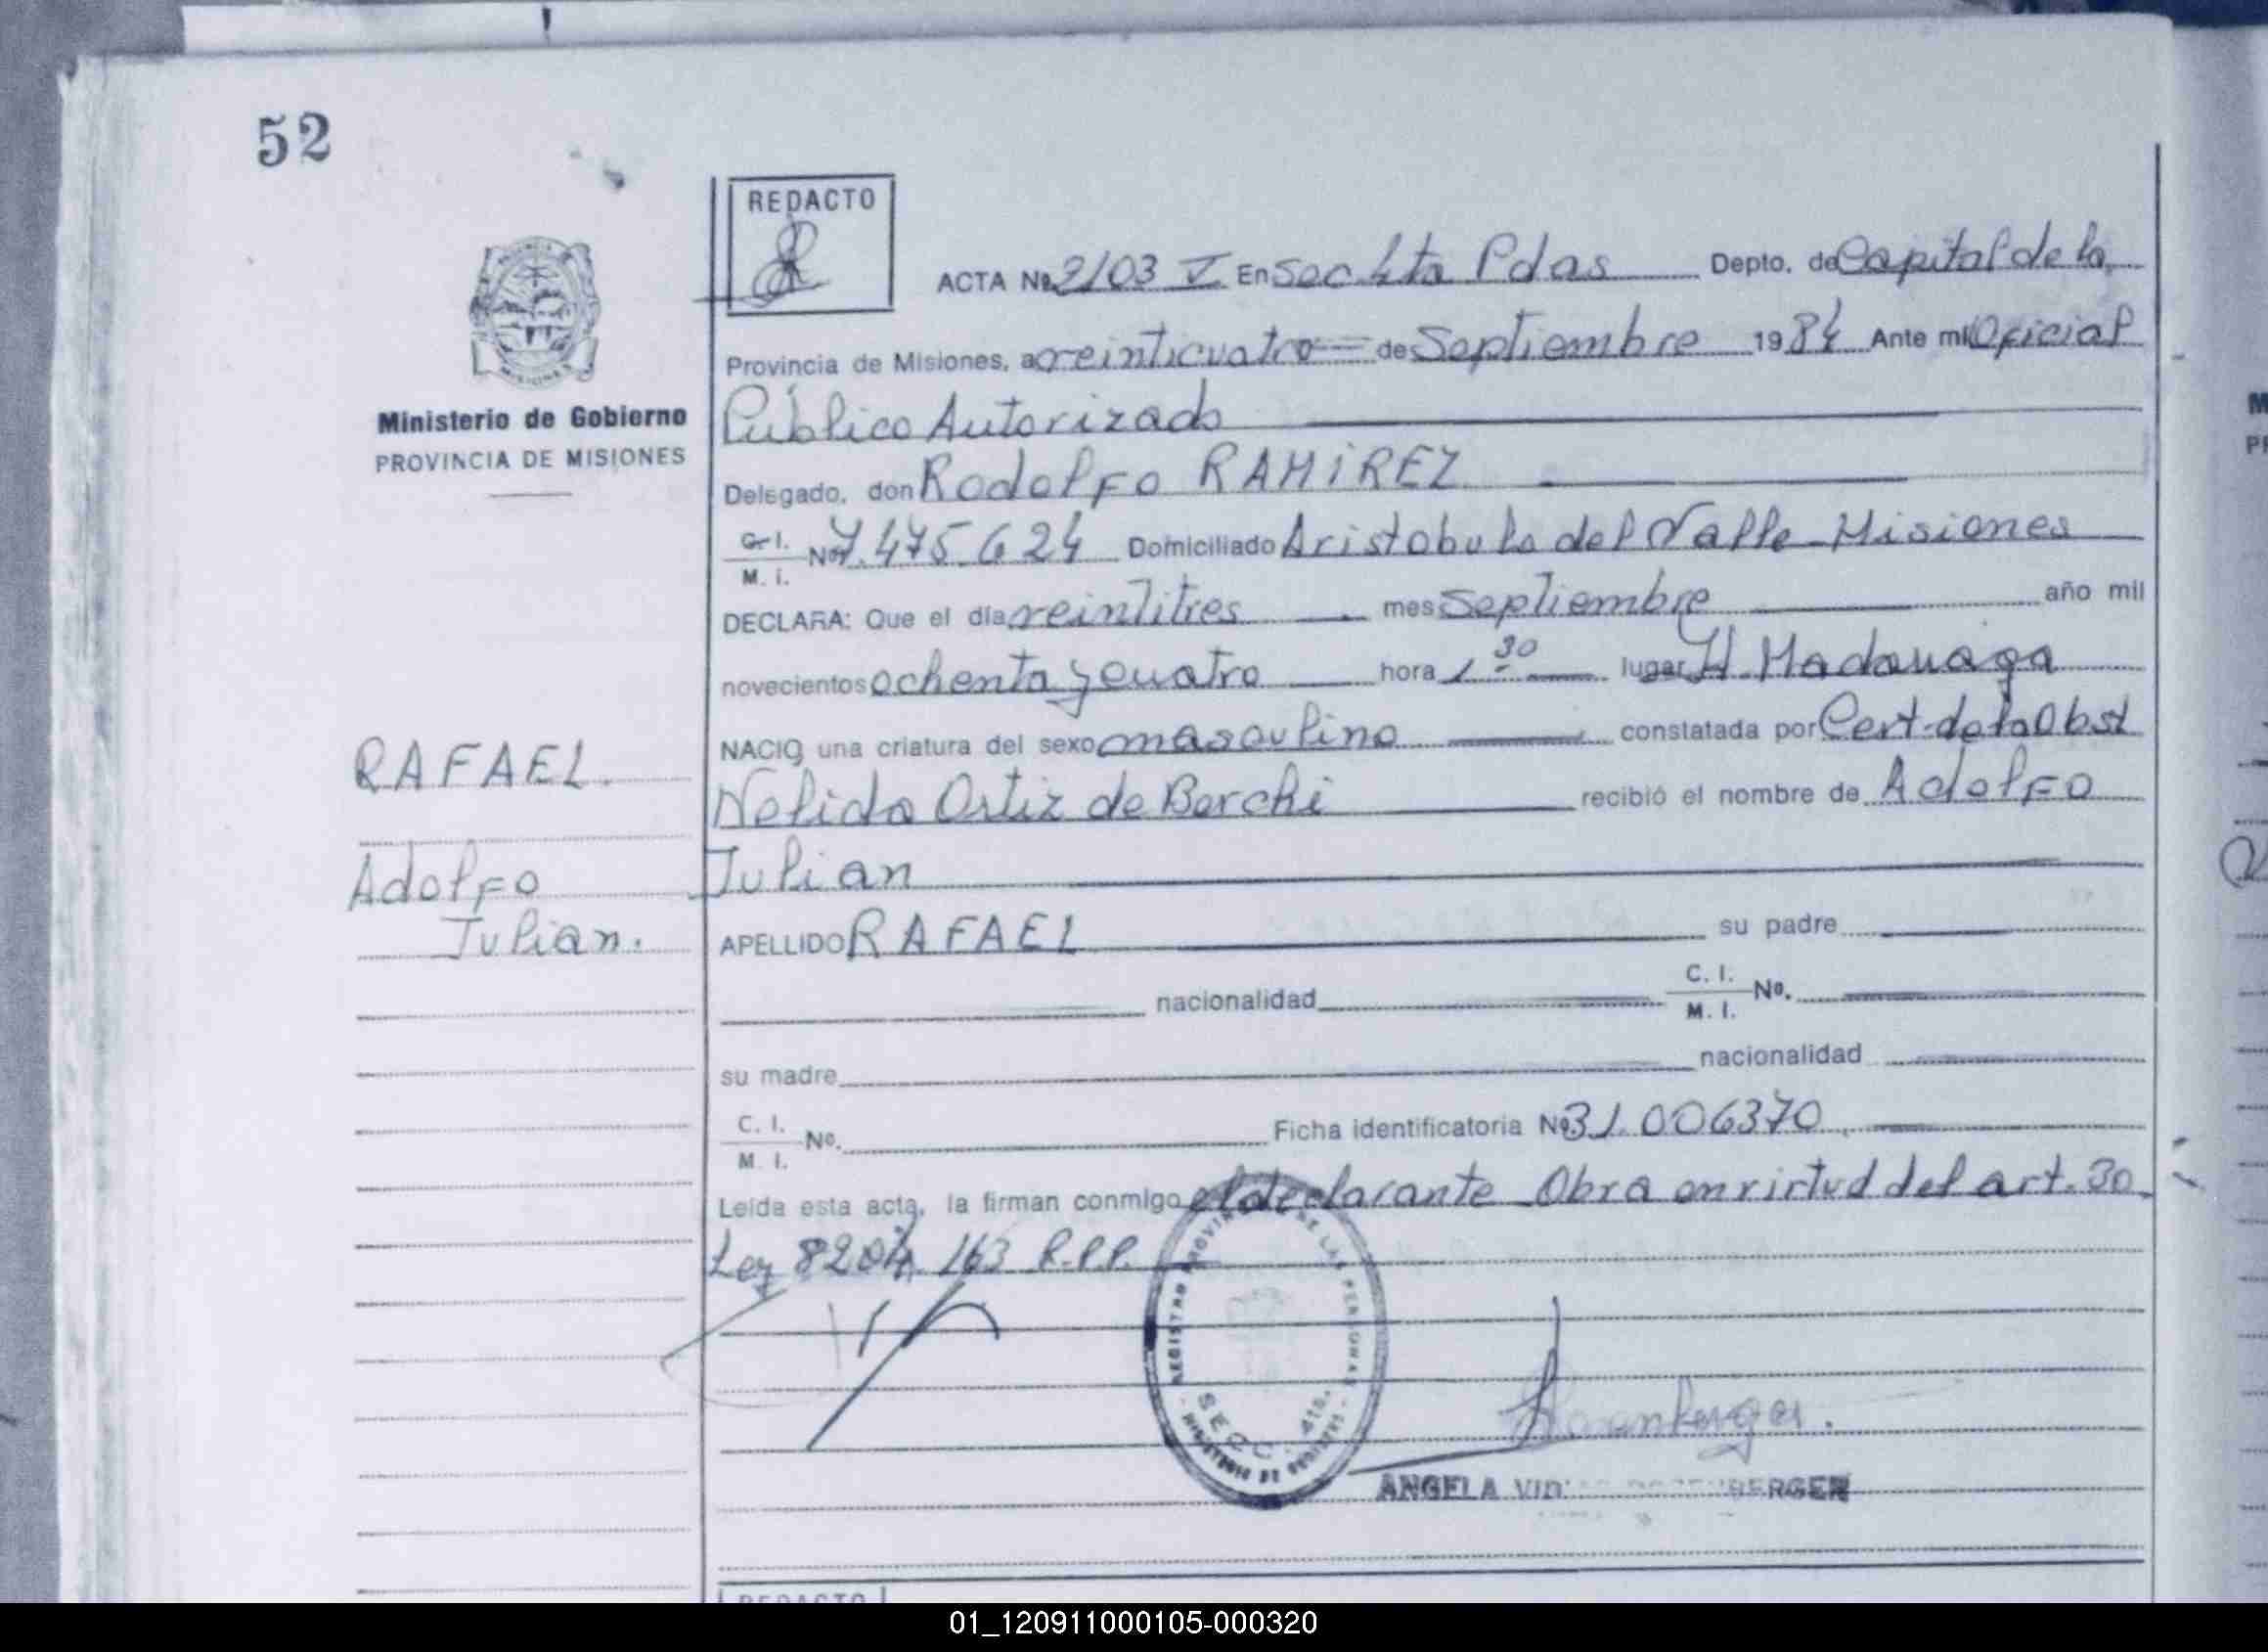 52
REDACTO
ACTA Nº 2103 I En Secc 4ta Pdas Depto. de Capital de la
Provincia de Misiones, a veinticuatro de Septiembre 1984 Ante mi Oficial
Público Autorizado
Ministerio de Gobierno
PROVINCIA DE MISIONES
Delegado, don Rodolfo RAMIREZ
C. I. Nº 7.475.624 Domiciliado Aristobulo del Valle Misiones
M. I.
DECLARA: Que el día veintitres mes Septiembre año mil
novecientos ochenta y cuatro hora 1 30 lugar H. Madariaga
NACIO una criatura del sexo masculino constatada por Cert. de la Obst
RAFAEL.
Nelida Ortiz de Berchi recibió el nombre de Adolfo
Adolfo
Julian
Julian.
APELLIDO RAFAEL su padre
nacionalidad C. I. Nº.
M. I.
su madre nacionalidad
C. I. Nº. Ficha identificatoria Nº 31.006370
M. I.
Leída esta acta, la firman conmigo el declarante Obra en virtud del art. 30
Ley 8204/63 R.P.P.
REGISTRO PROVINCIAL DE LAS PERSONAS
SECC. 4ta.
MINISTERIO DE GOBIERNO
ANGELA
REDACTO
01_120911000105-000320